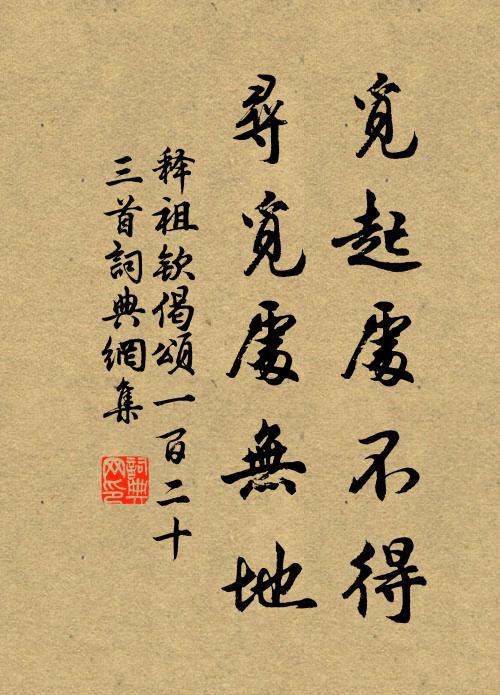 覓起處不得
尋覓處無地
释祖欽偈頌一百二十
三首詞典網集
詞典
网印